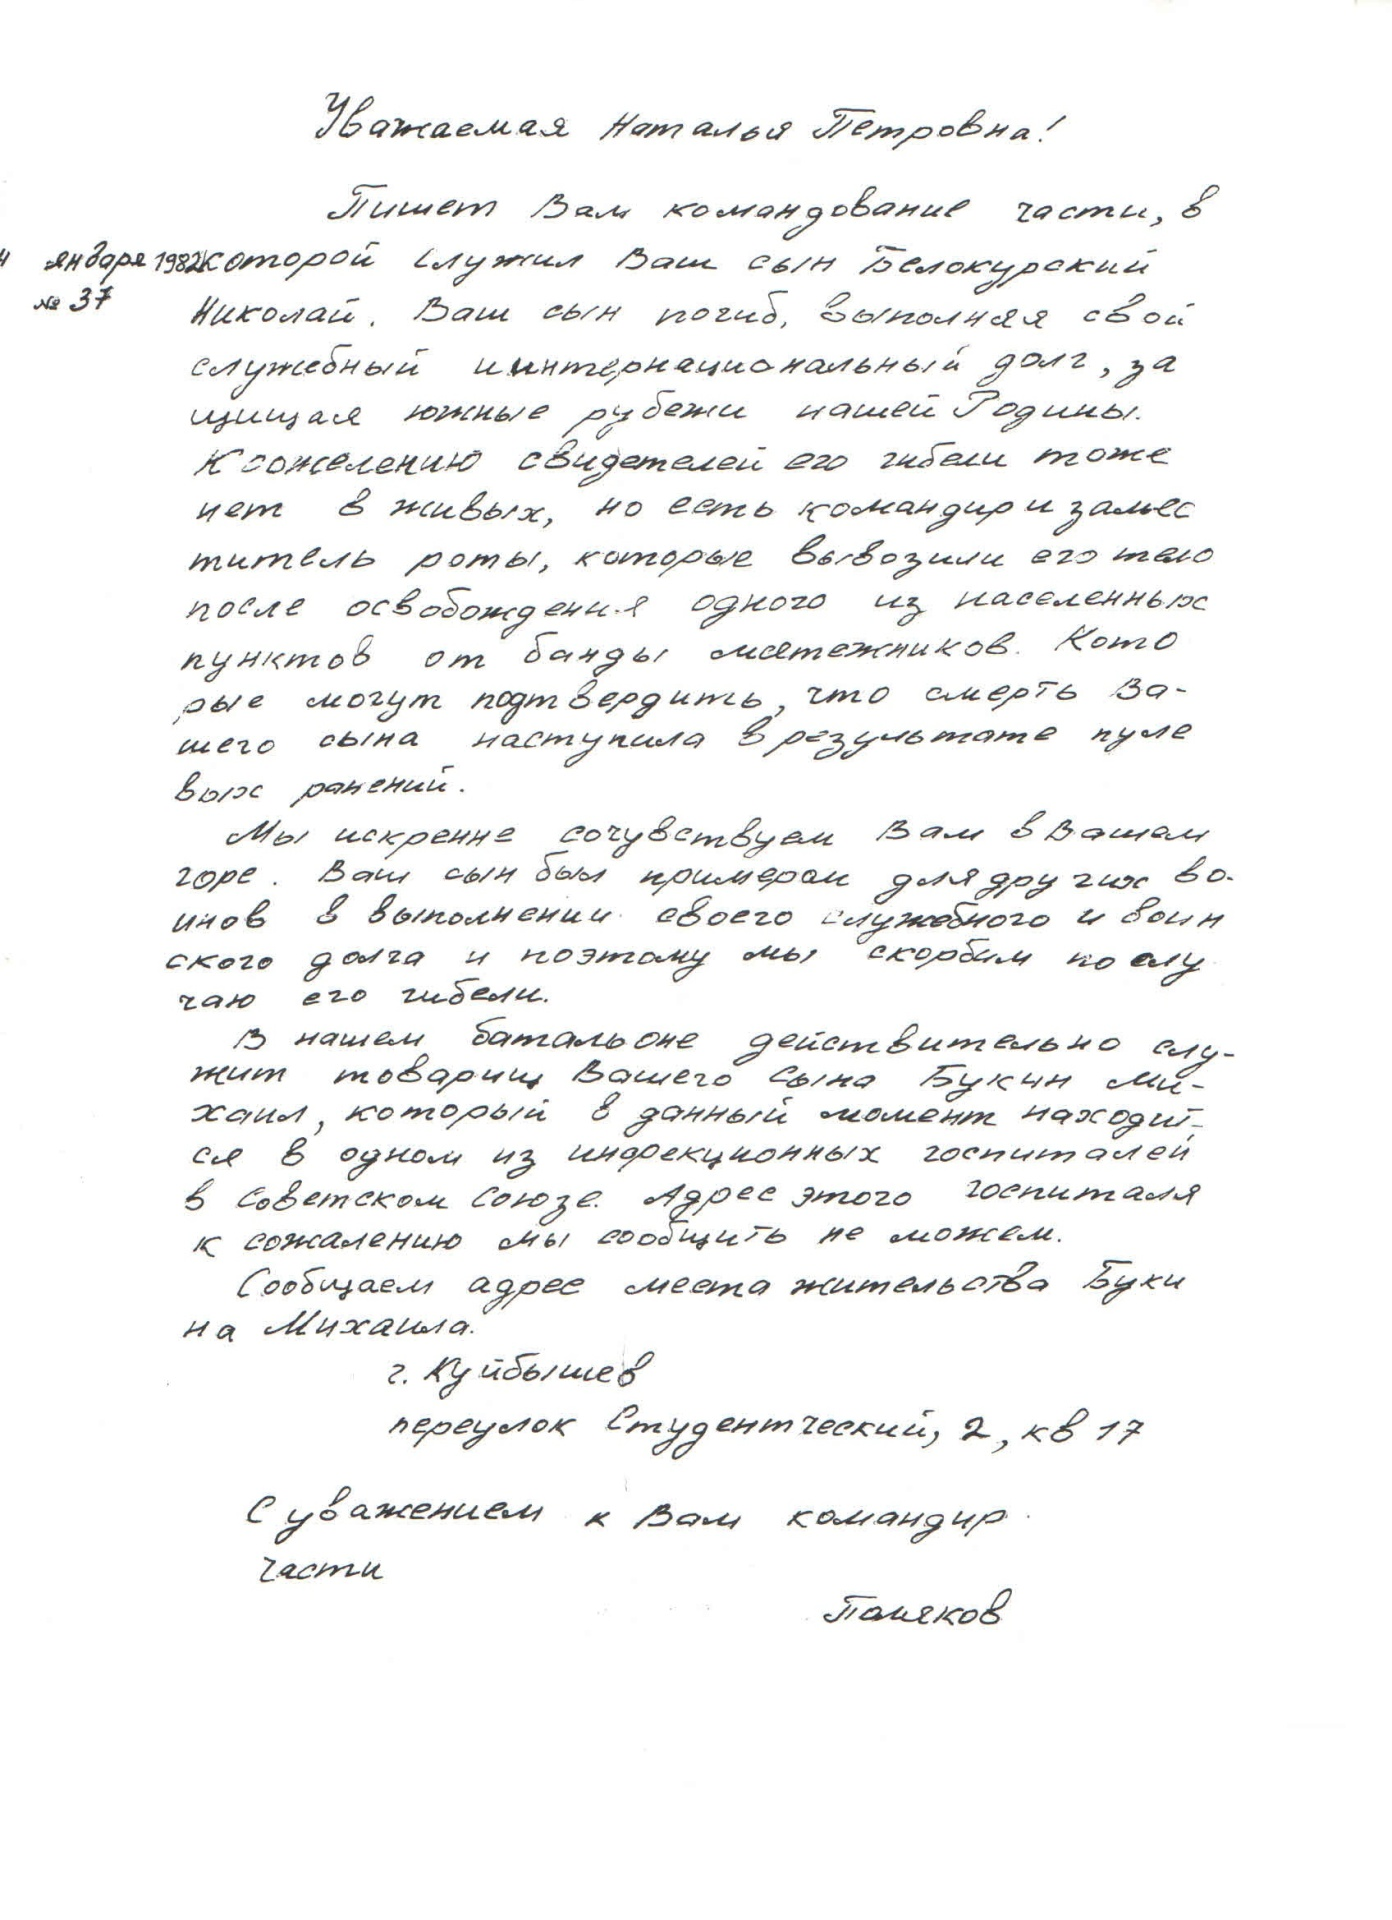 Уважаемая Наталья Петровна!
Пишет Вам командование части, в
января 1982 которой служил Ваш сын Белокурский
№ 37
Николай. Ваш сын погиб, выполняя свой
служебный и интернациональный долг, за
щищая южные рубежи нашей Родины.
К сожелению свидетелей его гибели тоже
нет в живых, но есть командир и замес
титель роты, которые вывозили его тело
после освобождения одного из населенных
пунктов от банды мятежников. Кото
рые могут подтвердить, что смерть Ва-
шего сына наступила в результате пуле
вых ранений.
Мы искренне сочувствуем Вам в Вашем
горе. Ваш сын был примером для других во-
инов в выполнении своего служебного и воин
ского долга и поэтому мы скорбим по слу
чаю его гибели.
В нашем батальоне действительно слу-
жит товарищ Вашего сына Букин Ми-
хаил, который в данный момент находит-
ся в одном из инфекционных госпиталей
в Советском Союзе. Адрес этого госпиталя
к сожалению мы сообщить не можем.
Сообщаем адрес места жительства Буки
на Михаила.
г. Куйбышев
переулок Студентческий, 2, кв 17
С уважением к Вам командир
части
Поляков